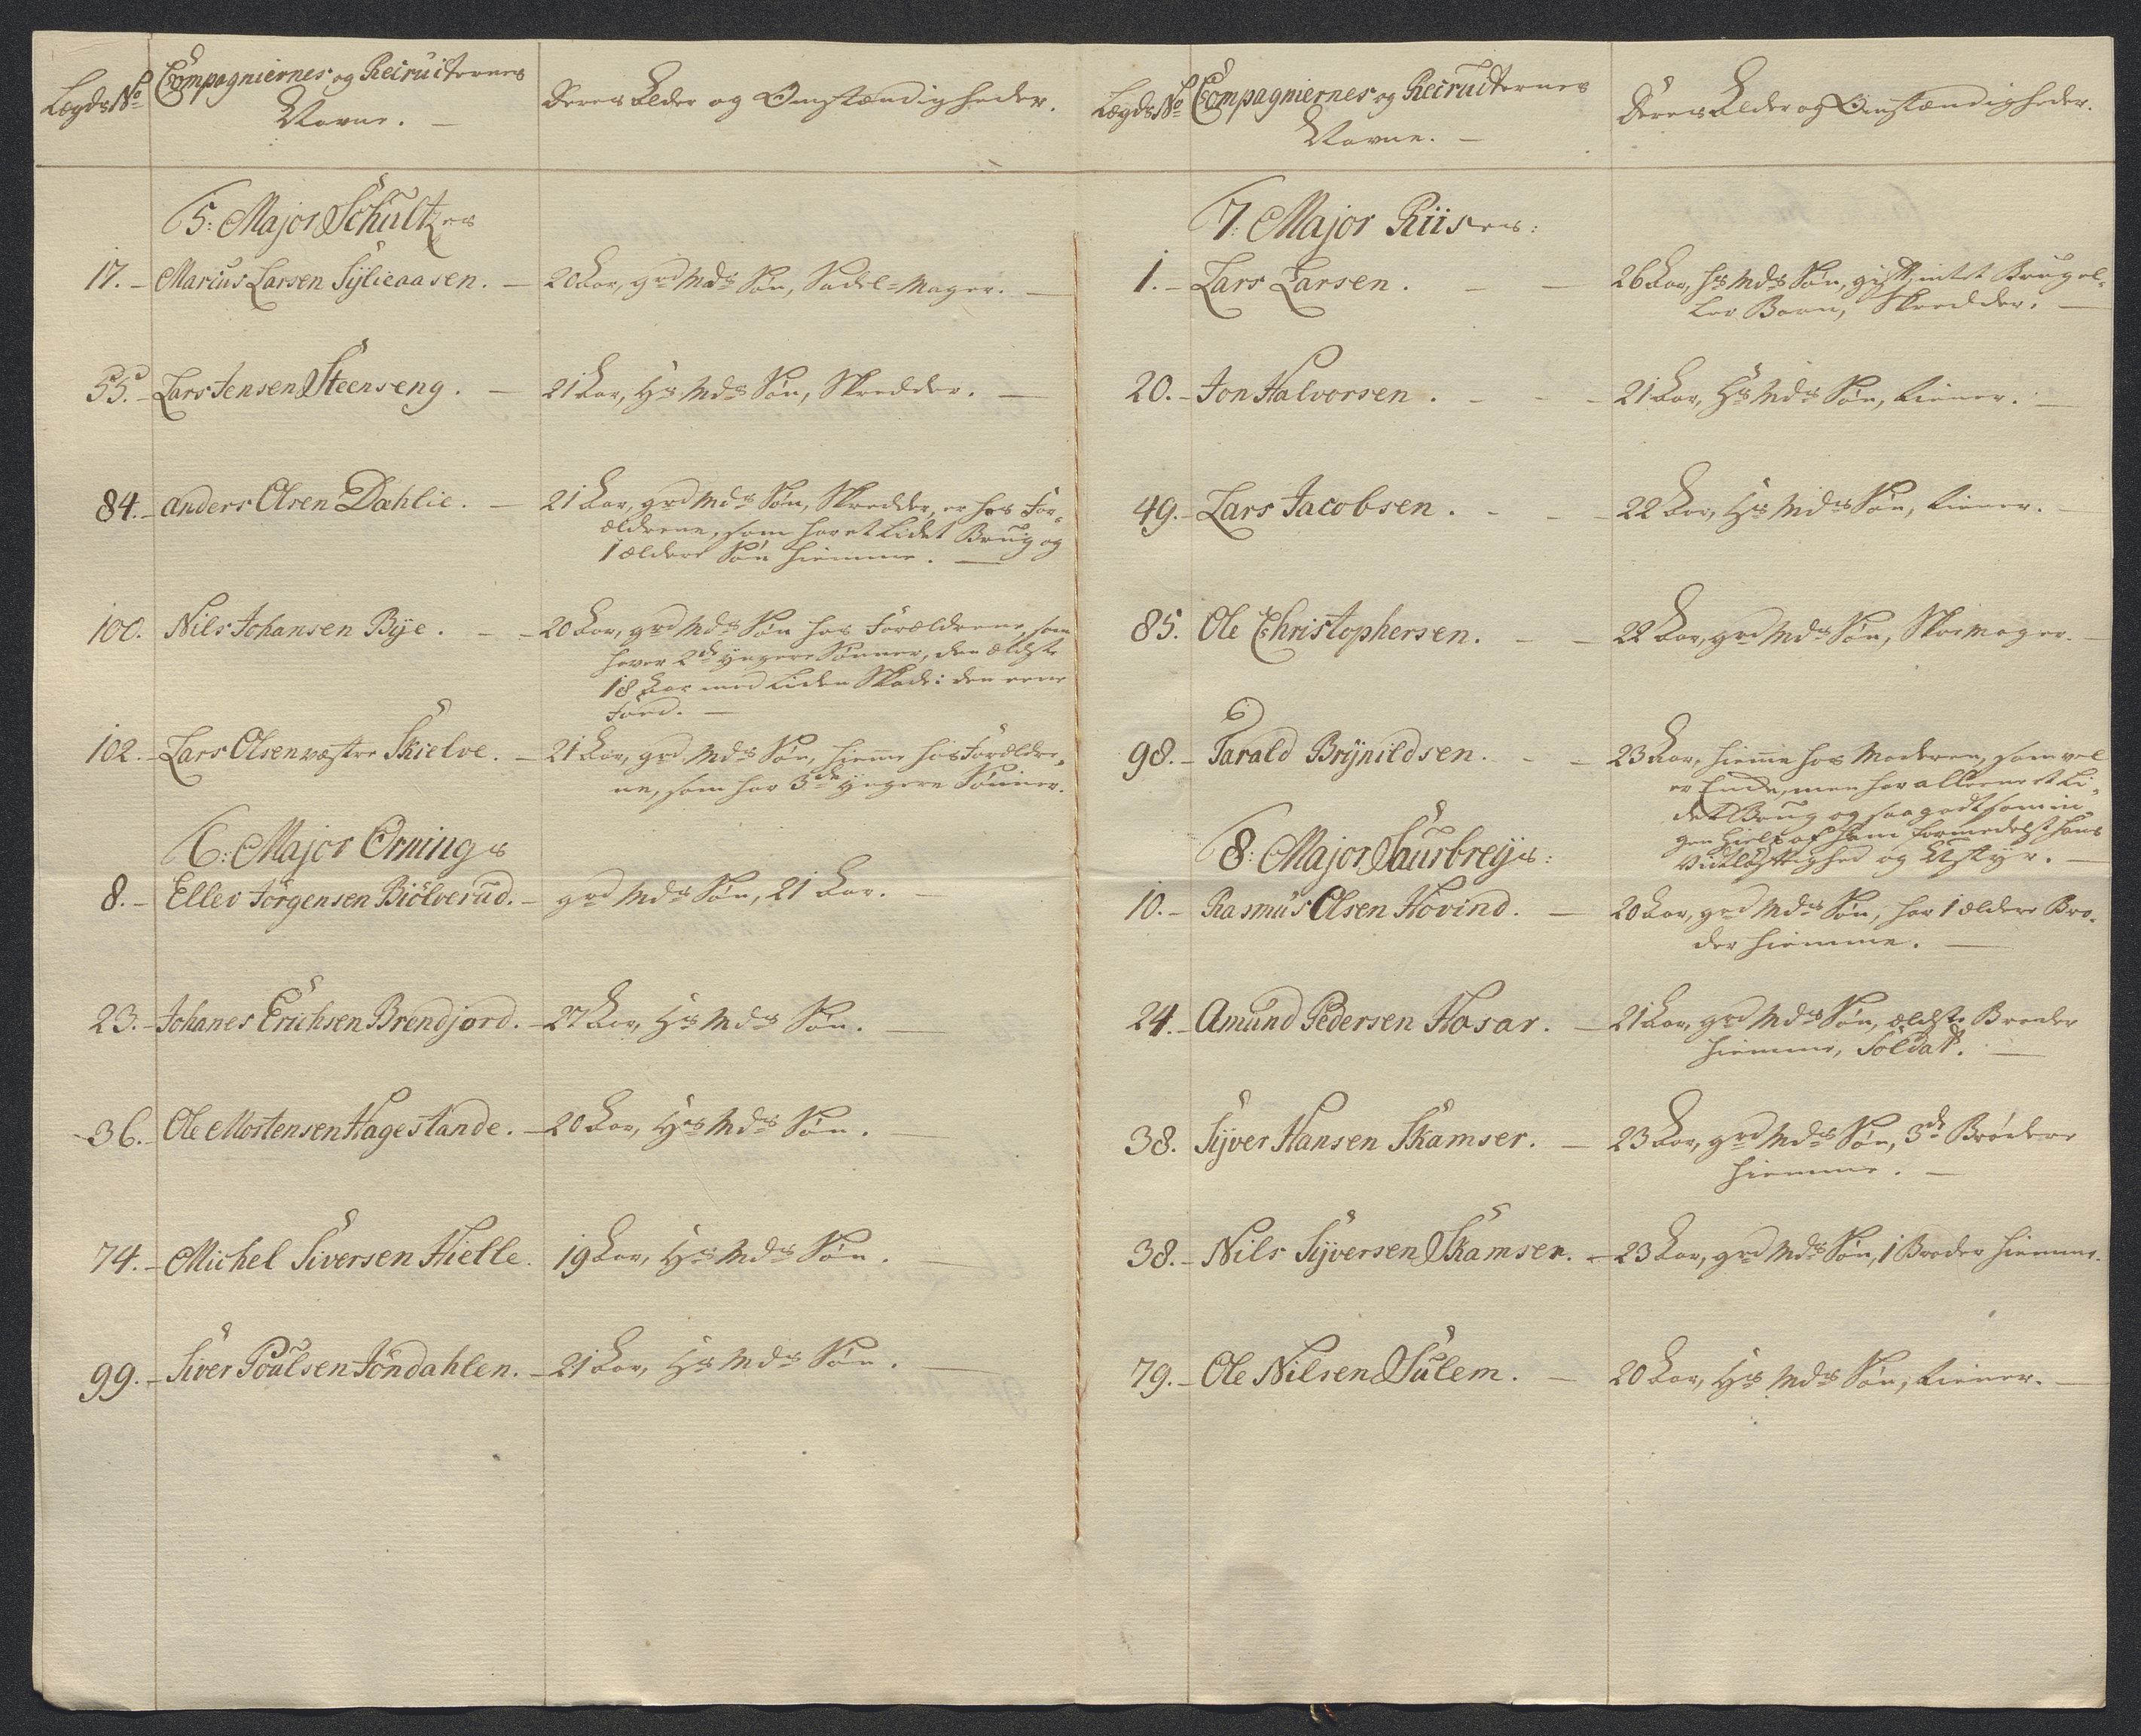 Lægds No
Compagniernes og Recruternes
Navne. —
Deres Alder og Omstændigheder.
5: Major Schultzes
17. - Marius Larsen Sylieaasen. — 20 Aar, grd Mds Søn, Sadel-Mager. —
55. - Lars Jensen Steenseng. — 21 Aar, Hs Mds Søn, Skredder. —
84. - Anders Olsen Dahlie. — 21 Aar, grd Mds Søn, Skredder, er hos For-
ældrene, som har et Lidet Brug og
1 ældere Søn hiemme. —
100. Nils Johansen Bye. - - 20 Aar, grd Mds Søn hos Forældrene, som
haver 2de yngere Sønner, den ældste
18 Aar med Liden Skade i den eene
Foed. —
102. - Lars Olsen væstre Skielve. - 21 Aar, grd Mds Søn, hieme hos Forældre-
ne, som har 3de yngere Sønner.
6: Major Ornings
8. - Ellev Jörgensen Biölverud. - grd Mds Søn, 21 Aar. —
23. - Johanes Erichsen Brendjord. - 27 Aar, Hs Mds Søn. —
36. - Ole Mortensen Hagestande. - 20 Aar, Hs Mds Søn. —
74. - Michel Siversen Hielle. 19 Aar, Hs Mds Søn. —
99. - Siver Poulsen Jöndahlen. - 21 Aar, Hs Mds Søn. —
Lægds No
Compagniernes og Recruternes
Navne. —
Deres Alder og Omstændigheder.
7: Major Riises:
1. - Lars Larsen. - — 26 Aar, Hs Mds Søn, gift, intet Brug el-
ler Barn, Skredder. —
20. - Jon Halvorsen. - - - 21 Aar, Hs Mds Søn, tiener. —
49. - Lars Jacobsen. - - - 22 Aar, Hs Mds Søn, tiener. -
85. Ole Christophersen. - - 22 Aar, grd Mds Søn, Skoemager. —
98. - Tarald Brynildsen. - - 23 Aar, hieme hos Moderen, som vel
er Enke, men har alleene et Li-
det Brug og saa godt som in-
gen Hielp af Ham formedelst hans
Vidtløftighed og Udstyr. —
8: Major Saurbreys:
10. - Rasmus Olsen Hovind. — 20 Aar, grd Mds Søn, har 1 ældere Bro-
der hiemme. —
24. - Amund Pedersen Hosar. — 21 Aar, grd Mds Søn, ældste Broder
hiemme, Soldat. —
38. Syver Hansen Skamser. — 23 Aar, grd Mds Søn, 3de Brødre
hiemme. —
38. - Nils Syversen Skamser. - 23 Aar, grd Mds Søn, 1 Broder hiemme.
79. - Ole Nilsen Sulem. — 20 Aar, Hs Mds Søn, tiener. —